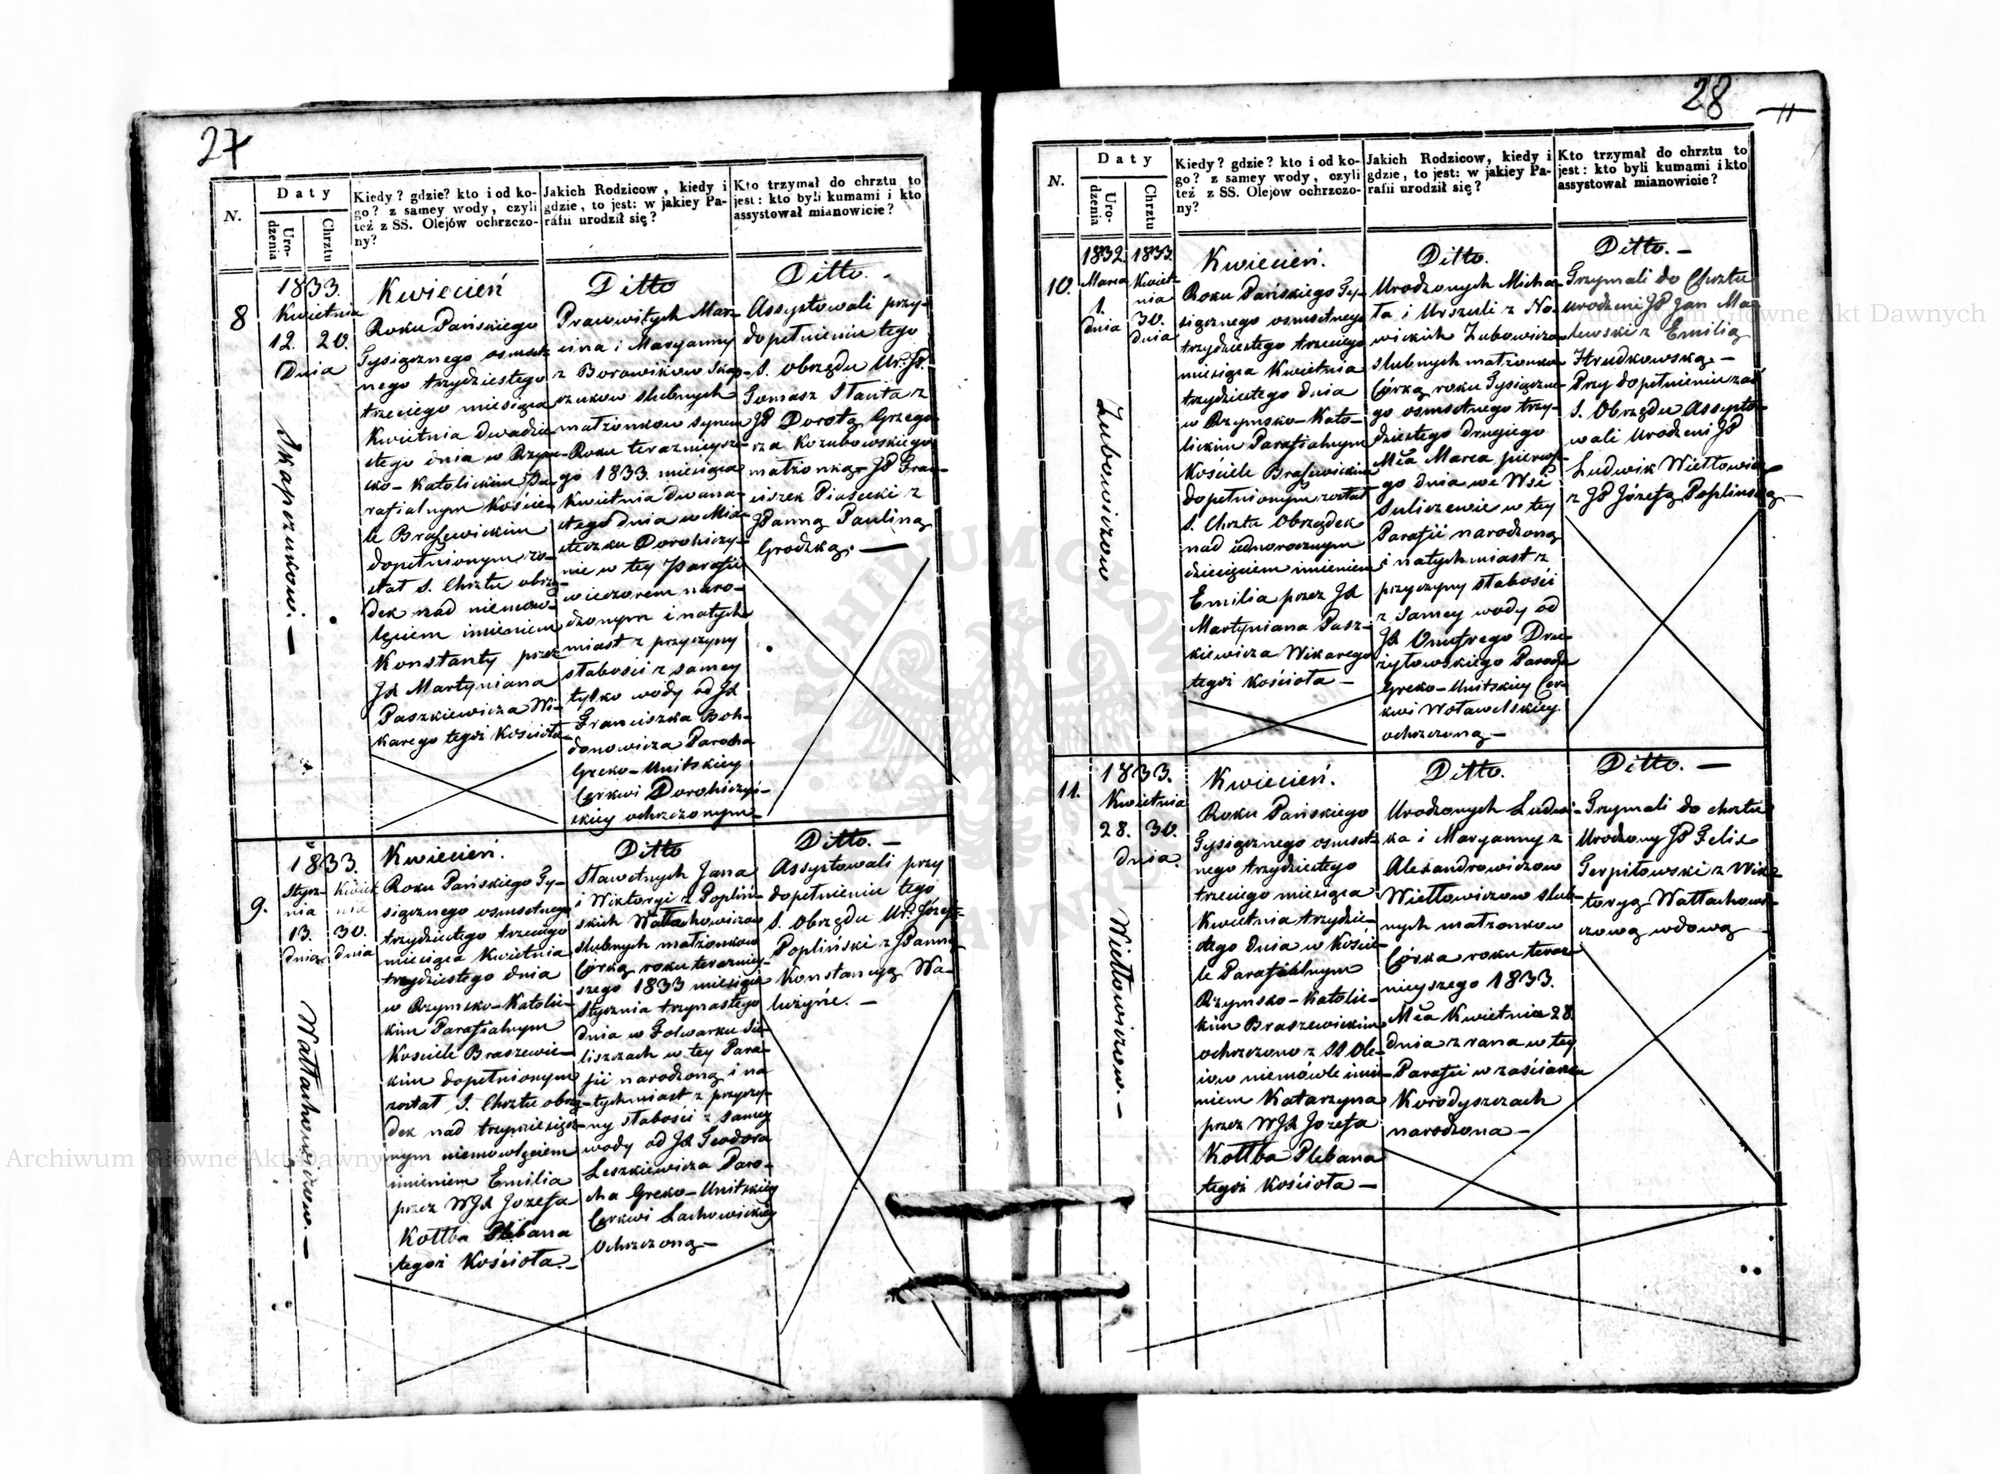 27
N.
Daty
Urodzenia
Chrztu
Kiedy? gdzie? kto i od ko-
go? z samey wody, czyli
też z SS. Olejów ochrzczo-
ny?
Jakich Rodzicow, kiedy i
gdzie, to jest: w jakiey Pa-
rafii urodził się?
Kto trzymał do chrztu to
jest: kto byli kumami i kto
assystował mianowicie?
8
1833.
Kwietnia
12. 20.
Dnia
Skapczukow. —
Kwiecień
Roku Pańskiego
Tysiącznego osmset-
nego trzydziestego
trzeciego miesiąca
Kwietnia dwudzie-
stego dnia w Rzym-
sko-Katolickim Pa-
rafialnym Koście-
le Braszewickim
dopełnionym zo-
stał S. Chrztu obrzą-
dek nad niemow-
lęciem imieniem
Konstanty przez
JX Martyniana
Paszkiewicza Wi-
karego tegoż Kościoła
Ditto
Pracowitych Mar-
cina i Maryanny
z Borowików Skap-
czukow slubnych
małżonkow synem
Roku teraznieysze-
go 1833. miesiąca
Kwietnia dwuna-
stego dnia w Mia-
steczku Dorohiczy-
nie w tey Parafii
wieczorem naro-
dzonym i natych-
miast z przyczyny
słabości z samey
tylko wody od JX
Franciszka Boh-
danowicza Parocha
Greko-Unitskiey
Cerkwi Dorohiczyń-
skiey ochrzczonym—
Ditto. —
Assystowali przy
dopełnieniu tego
S. obrzędu Ur: JP.
Tomasz Stanta z
JP Dorotą Grzego-
rza Kozubowskiego
małżonką. JP Fran-
ciszek Piasecki z
JPanną Pauliną
Grodzką. —
9.
1833.
Stycz-
nia
13.
dnia
Kwiet-
nia
30.
dnia
Wattachowiczow. —
Kwiecień.
Roku Pańskiego Ty-
siącznego osmsetnego
trzydziestego trzeciego
miesiąca Kwietnia
trzydziestego dnia
w Rzymsko-Katolic-
kim Parafialnym
Kościele Braszewic-
kim dopełnionym
został S. Chrztu obrzą-
dek nad trzymiesięcz-
nym niemowlęciem
imieniem Emilia
przez WJX Jozefa
Kottba Plebana
tegoż Kościoła. —
Ditto
Sławetnych Jana
i Wiktoryi z Popliń-
skich Wattachowiczow
slubnych małżonkow
Córką roku teraźniey-
szego 1833 miesiąca
Stycznia trzynastego
dnia w Folwarku Su-
liszczach w tey Para-
fii narodzoną i na-
tychmiast z przyczy-
ny słabości z samey
wody od JX Teodora
Leszkiewicza Paro-
cha Greko-Unitskiey
Cerkwi Lachowickiey
Ochrzczoną —
Ditto. —
Assystowali przy
dopełnieniu tego
S. Obrzędu Ur: Józef
Popliński z JPanną
Konstancyą Wa-
lużyńc. —
28
11
N.
Daty
Urodzenia
Chrztu
Kiedy? gdzie? kto i od ko-
go? z samey wody, czyli
też z SS. Olejów ochrzczo-
ny?
Jakich Rodzicow, kiedy i
gdzie, to jest: w jakiey Pa-
rafii urodził się?
Kto trzymał do chrztu to
jest: kto byli kumami i kto
assystował mianowicie?
10.
1832.
Marca
1.
dnia
1833.
Kwiet-
nia
30.
dnia
Zubowiczow
Kwiecień.
Roku Pańskiego Ty-
siącznego osmsetnego
trzydziestego trzeciego
miesiąca Kwietnia
trzydziestego dnia
w Rzymsko-Kato-
lickim Parafialnym
Kościele Braszewickim
dopełnionym został
S. Chrztu Obrządek
nad iednorocznym
dziecięciem imieniem
Emilia przez JX
Martyniana Pasz-
kiewicza Wikarego
tegoż Kościoła —
Ditto.
Urodzonych Micha-
ła i Urszuli z No-
wickich Zubowiczow
slubnych małżonkow
Córką roku tysiączne-
go osmsetnego trzy-
dziestego drugiego
Mca Marca pierwsze-
go dnia we Wsi
Suliczewie w tey
Parafii narodzoną
i natychmiast z
przyczyny słabości
z samey wody od
JX Onufrego Dru-
żyłowskiego Parocha
Greko-Unitskiey Cer-
kwi Woławelskiey
ochrzczoną —
Ditto. —
Trzymali do Chrztu
urodzeni JP Jan Ma-
lewski z Emilią
Hrudkowską. —
Przy dopełnieniu zaś
S. Obrzędu Assysto-
wali Urodzeni JP
Ludwik Wiettowicz
z JP Józefą Poplinską —
11.
1833.
Kwietnia
28. 30.
dnia.
Wiettowiczow. —
Kwiecień.
Roku Pańskiego
Tysiącznego osmset-
nego trzydziestego
trzeciego miesiąca
Kwietnia trzydzie-
stego dnia w Koście-
le Parafialnym
Rzymsko-Katolic-
kim Braszewickim
ochrzczono z SS Ole-
iow niemówle imie-
niem Katarzyna
przez WJX Jozefa
Kottba Plebana
tegoż Kościoła —
Ditto.
Urodzonych Ludwi-
ka i Maryanny z
Alexandrowiczow
Wiettowiczow slub-
nych małżonkow
Córka roku teraz-
nieyszego 1833.
Mca Kwietnia 28.
dnia z rana w tey
Parafii w zaścianku
Korodyszczach
narodzona —
Ditto. —
Trzymali do chrztu
Urodzony JP Felix
Terpiłowski z Wik-
toryą Wattachowi-
czową wdową —
Archiwum Główne Akt Dawnych
Archiwum Główne Akt Dawnych
ARCHIWUM GŁÓWNE AKT DAWNYCH